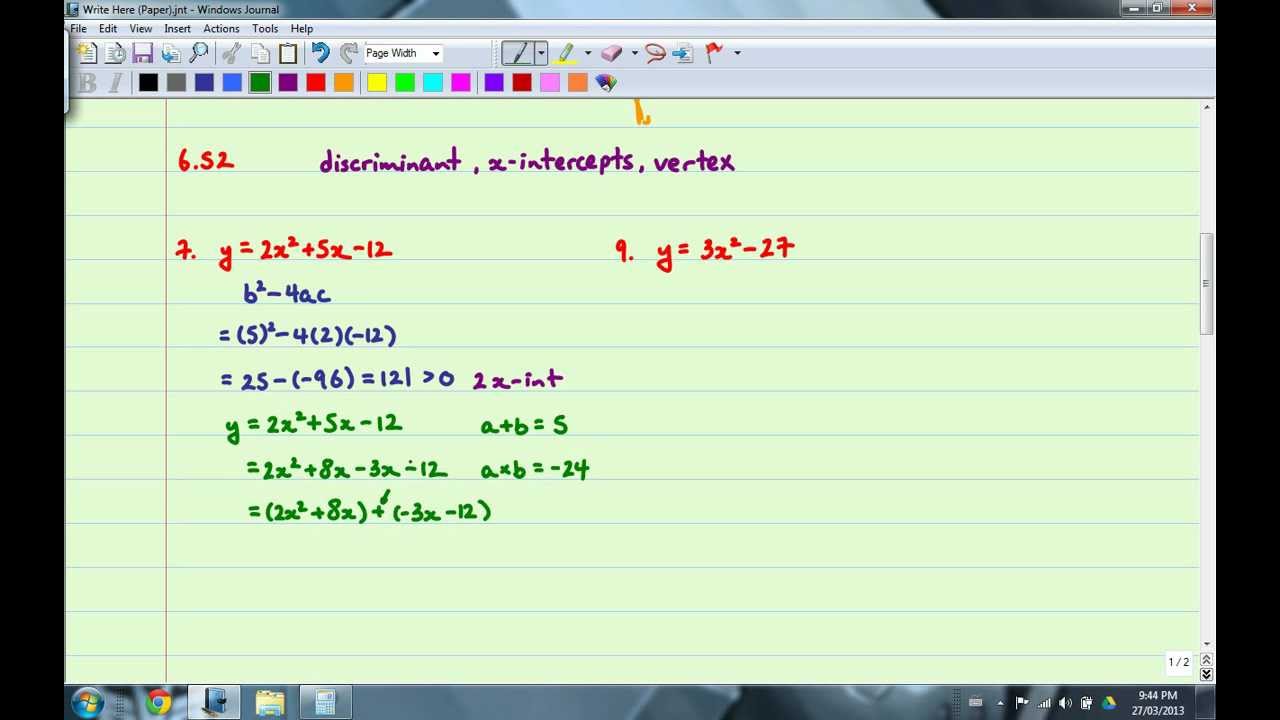 Write Here (Paper).jnt - Windows Journal
File Edit View Insert Actions Tools Help
Page Width
B I
6.S2 discriminant, x-intercepts, vertex
7. y = 2x² + 5x - 12
9. y = 3x² - 27
b² - 4ac
= (5)² - 4(2)(-12)
= 25 - (-96) = 121 > 0 2 x-int
y = 2x² + 5x - 12 a + b = 5
= 2x² + 8x - 3x - 12 a × b = -24
= (2x² + 8x) + (-3x - 12)
1 / 2
9:44 PM
27/03/2013